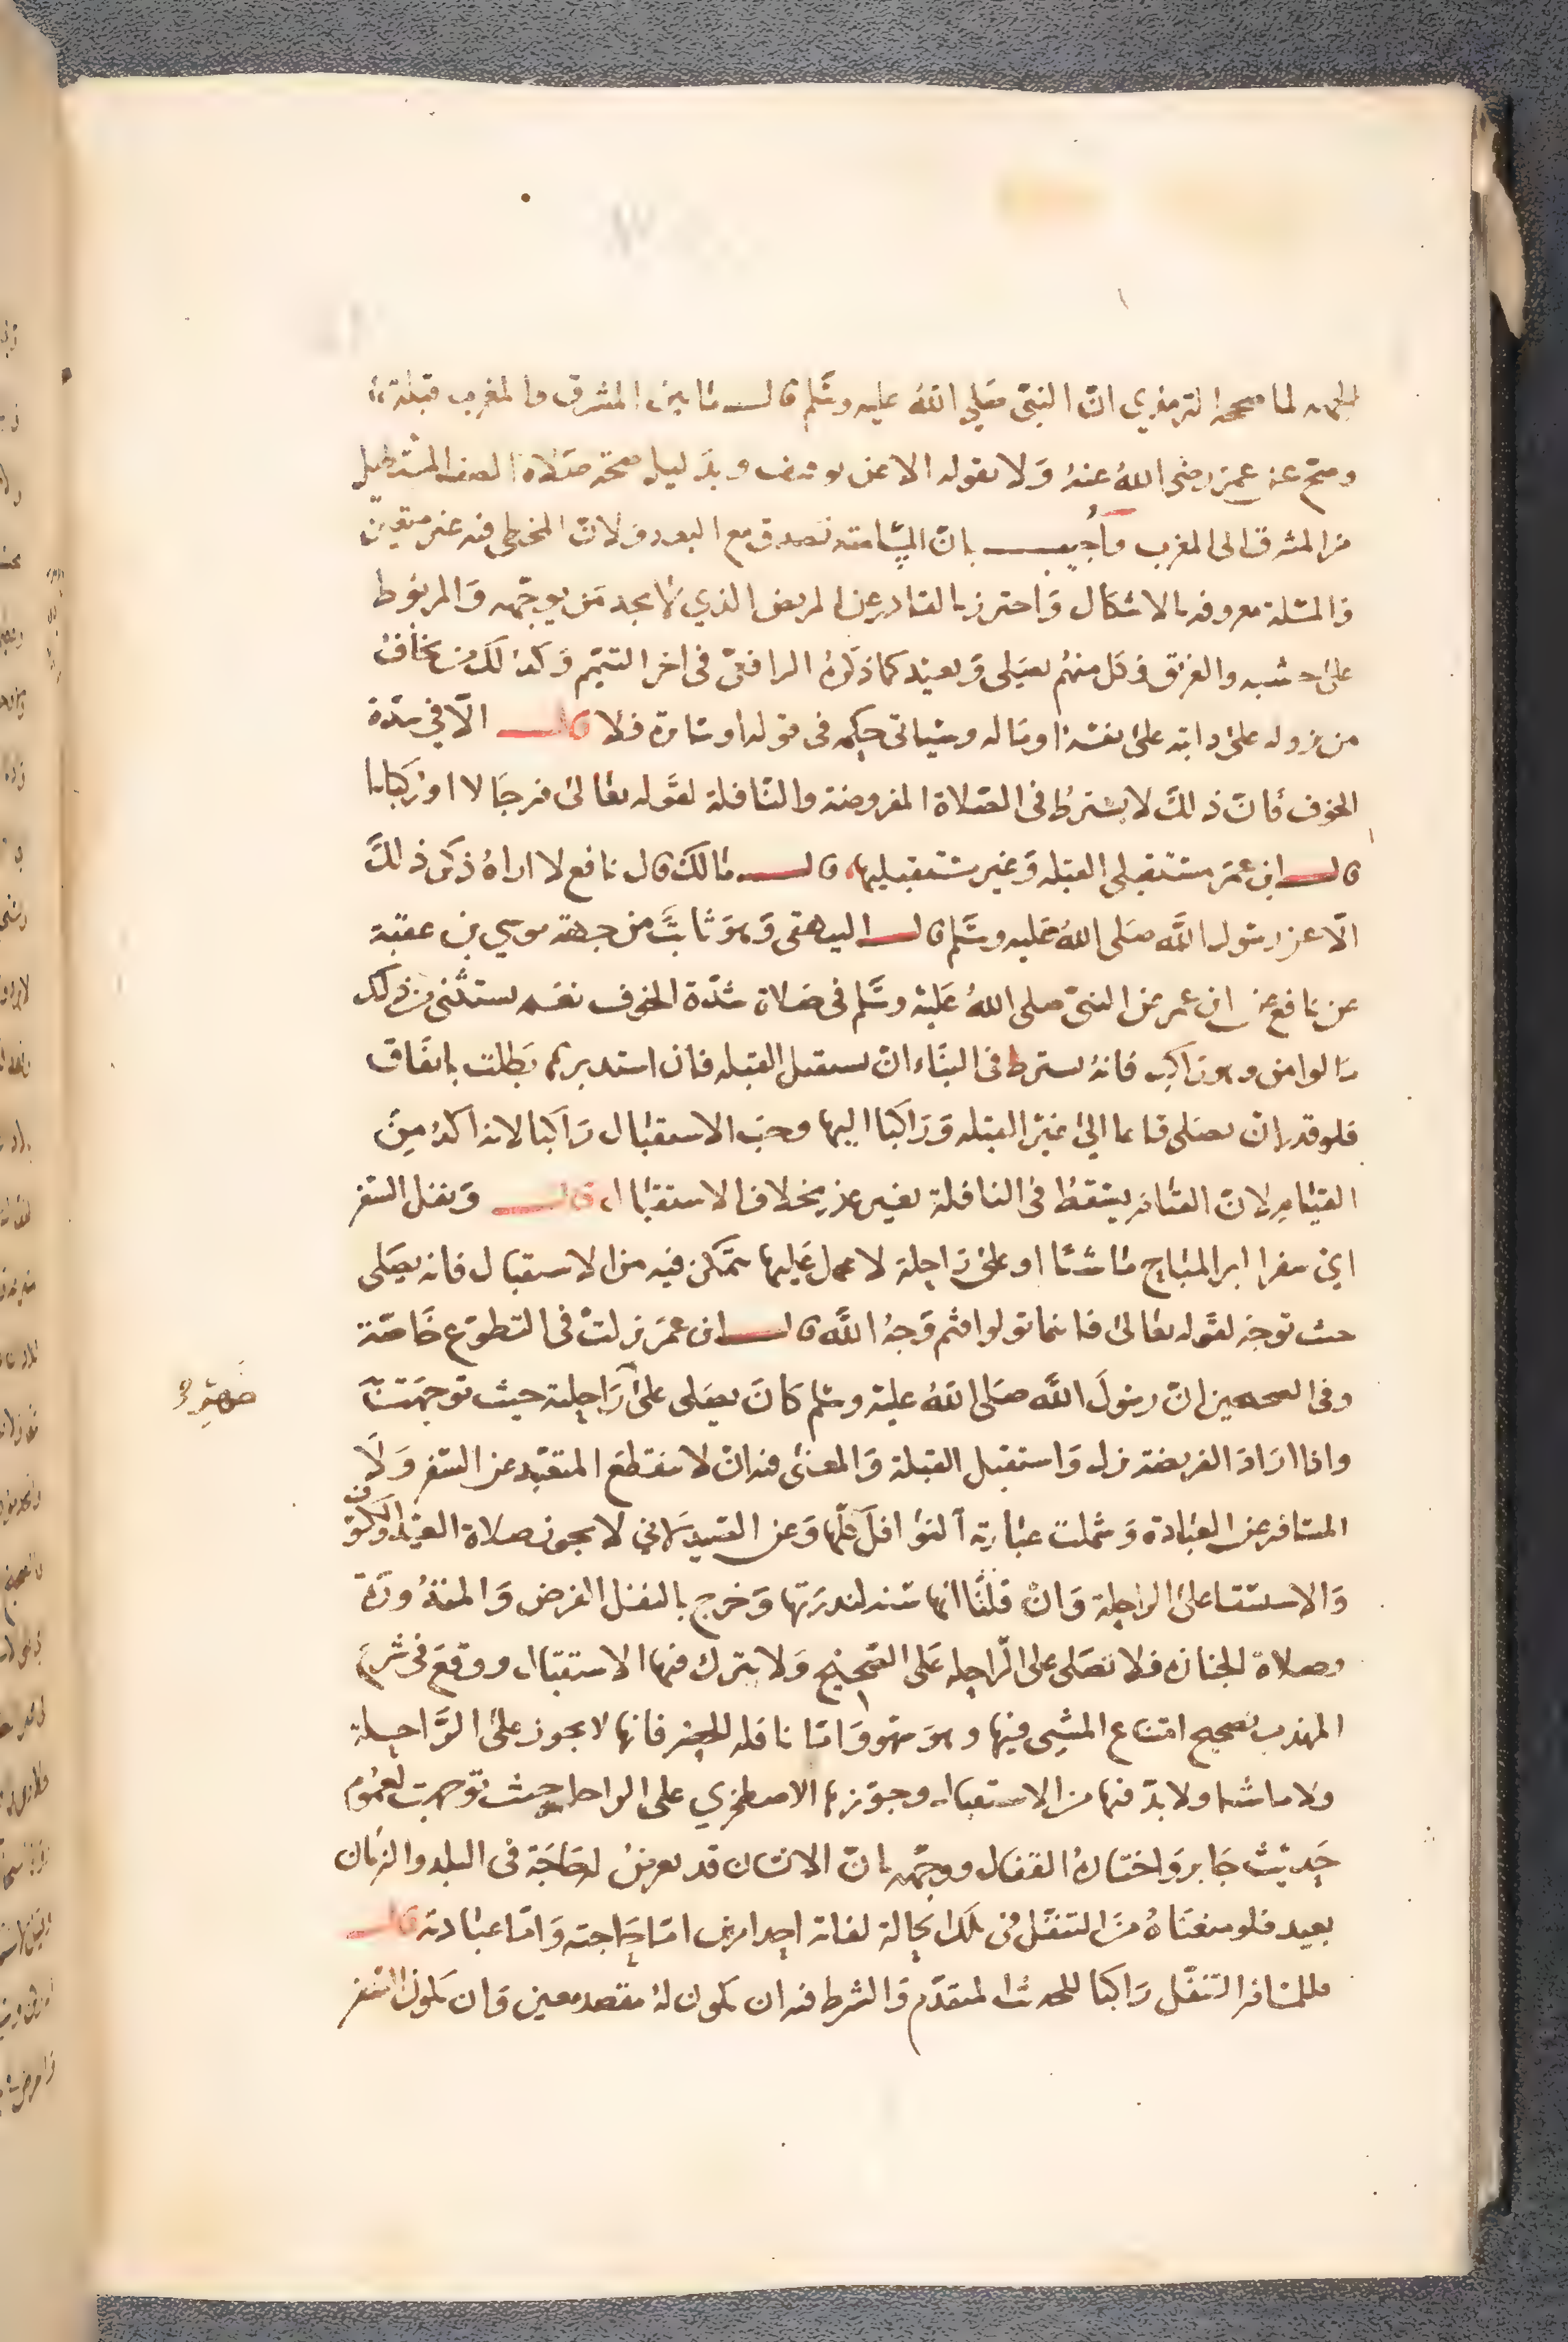 الجهه لما صححه الترمذي انّ النبيّ صَلي اللهُ عليه وسَّلم قال مَا بين المشرق والمغرب قبلة
وصحّ عن عمرَ رضى اللهُ عنهُ وَلا يقوله الا عن توقيف وبدَ ليل صحة صَلاة الصف المستطيل
من المشرق الى المغرب فأجيب بانّ المسَامته تصدق مع البعد ولانّ المخطي فيه غير متعيّن
والمسَلة معروفه بالاشكال وَاحترز بالقادر عن المريض الذي لا يجد مَن يوجّهه وَالمربوط
على خشبه والغريق فكل منهم يصَلى وَيعيد كما ذكرهُ الرافعيّ فى اخر التيمّم وَكذلكَ من يخافُ
من نزوله على دابته على نفسَه او مَاله وسَياتى حكمه فى قوله او سَايرة فلا قال الاّ في شدّة
الخوف فَانّ ذلكَ لا يشترط فى الصّلاة المفروضة والنّافلة لقوَله تعَالى فرجَالا او ركبَانا
قال ابن عمَر مستقبلى القبله وَغير مستقبليها قال مَالك قال نافع لا اراهُ ذكرَ ذلكَ
الّا عن رسَول اللَّه صَلى اللهُ عَليه وسَّلم قال البيهقى وَهوَ ثابتٌ من جهة موسي بن عقبة
عن نافع عن ابن عمر عن النبيّ صلى اللهُ عَلية وسَّلم فى صَلاة شدّة الخوف نعَم يستثنى من ذلك
مَا لو امن وهو رَاكب فانهُ يشترط فى البنَاء انّ يستقبل القبله فان استدبرها بَطلت باتفَاق
فلو قدر انّ يصَلى قائما الى غيرَ القبله وَرَاكبا اليها وجَب الاستقبَال رَاكبا لانه اكد مِنَ
القيَام لانّ القيَام يسَقط فى النافلة بغير عذر بخلاف الاستقبَال قال وَنفل السَفر
ايْ سَفرا ابرا لمبَاح مَاشيًا او على رَاحلة لا عمل عَليها يتمَكن فيه من الاستقبَال فانه يصَلى
حيث توجّه لقوَله تعَالى فاينما تولوا فثم وَجهُ اللَّه قال ابن عمرَ نزلتْ فى التطوّع خَاصّة
وفى الصحيحين انّ رسَولَ اللَّه صَلى اللهُ علية وسَلم كانَ يصَلى على رَاحلته حيث توجهَت بهَ
واذا ارَادَ الفريضة نزل وَاستقبل القبلة وَالمعنى فيه انْ لا ينقطعَ المتعبّد عن السَفر وَلَا
المسَافر عن العبَادة وَشملت عبَارته النوَافلَ كلّها وَعن الصَيدَلاني لا يجوز صلاة العيد والكسوف
وَالاستسَقا على الراحلة وَانْ قلنَا انها سَنة لندرَتها وَخرج بالنفل الفرض وَالمنذورَة
وصلاة الجنازه فلا تصَلى على الرّاحله عَلى الصّحيح وَلا يترك فيها الاستقبَال ووقعَ فى شرح
المهذب تصحيح امتناع المشي فيها وهوَ سَهو وَامّا نافله الحضر فانها لا يجوز على الرَّاحلة
ولا ماشيا ولا بدّ فيها من الاستقبال وجوّزها الاصطخري على الراحلة حيث توّجهت لعمُوم
حَديثْ جَابر وَاختارهُ القفَال ووجّهه بانّ الانسَان قد يعرضُ لهُ حَاجَة فى البلد والزمَان
بعيد فلو منعنَاهُ منَ التنفّل فى تلكَ الحالة لفاته احد امرين امّا حَاجته وَامّا عبَادته قال
وللمسَافر التنفّل رَاكبا للحديث المتقدّم وَالشرط فيه ان يكون لهُ مقصد معين وَان يكون السَفر